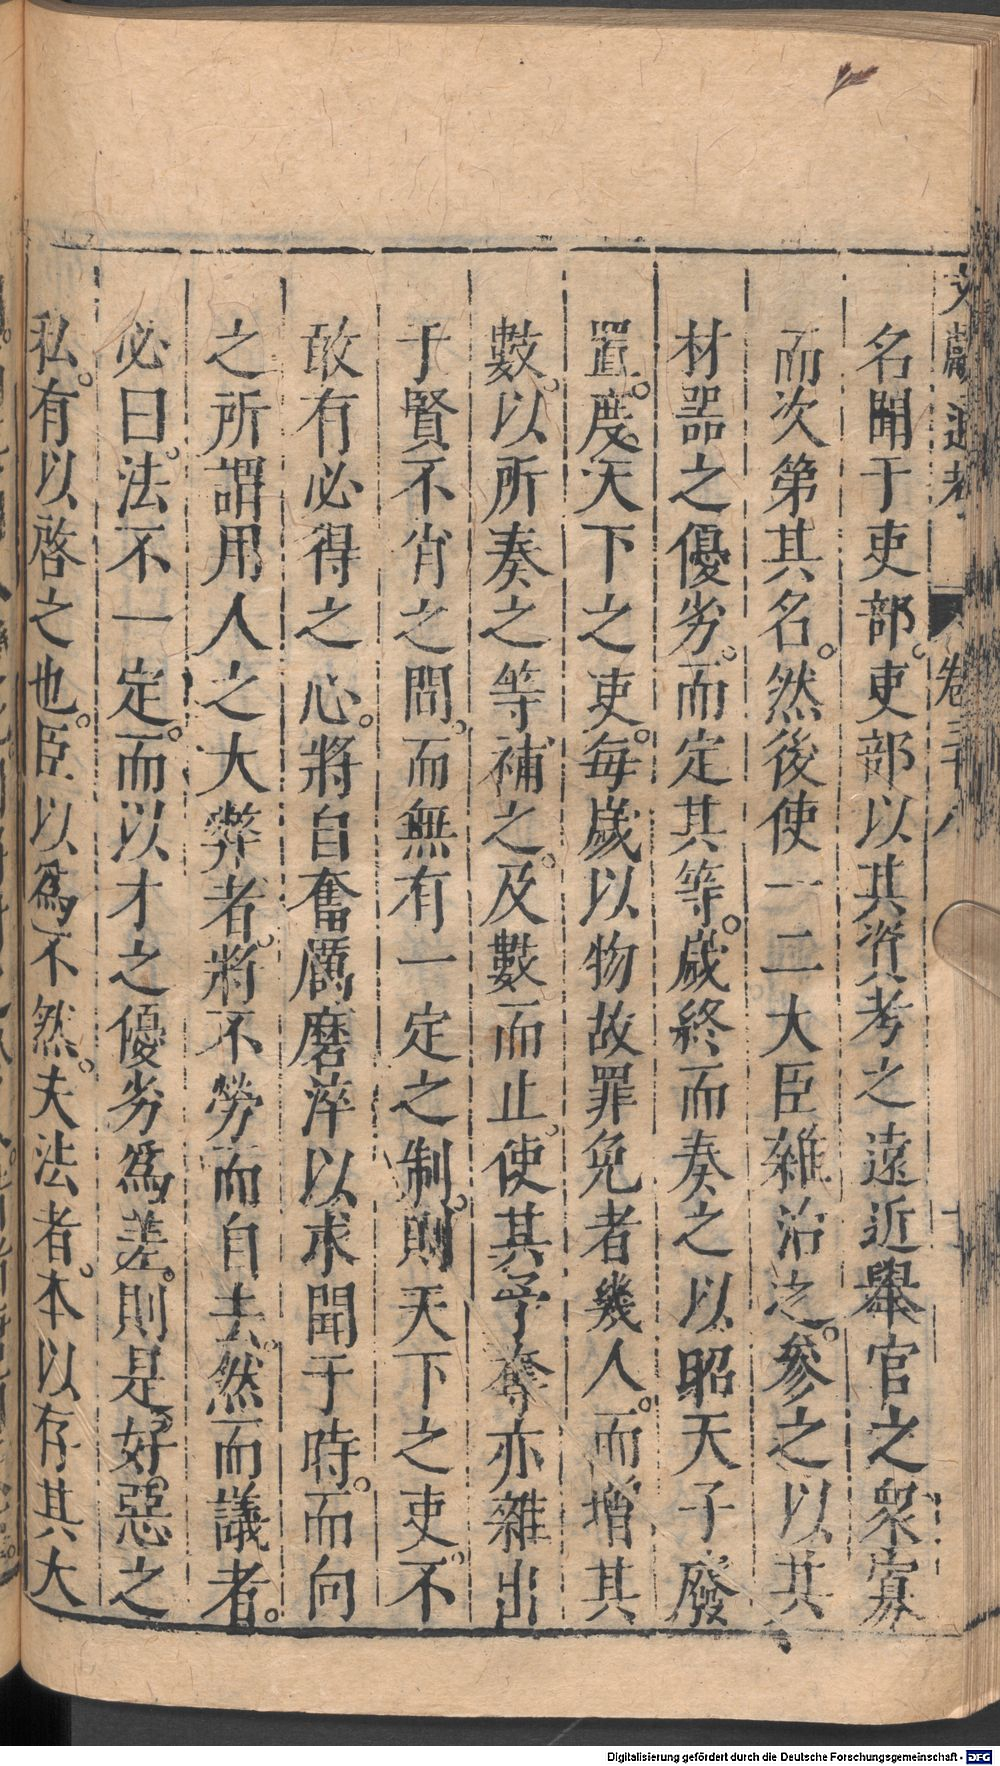 文獻通考 卷三十八 十
名聞于吏部。吏部以其資考之遠近舉官之衆寡
而次第其名。然後使一二大臣雜治之。參之以其
材器之優劣。而定其等。歲終而奏之以昭天子廢
置。度天下之吏。每歲以物故罪免者幾人。而增其
數。以所奏之等補之。及數而止。使其予奪亦雜出
于賢不肖之間。而無有一定之制。則天下之吏。不
敢有必得之心。將自奮厲磨淬以求聞于時。而向
之所謂用人之大弊者。將不勞而自去。然而議者。
必曰。法不一定。而以才之優劣爲差。則是好惡之
私。有以啓之也。臣以爲不然。夫法者。本以存其大
Digitalisierung gefördert durch die Deutsche Forschungsgemeinschaft - DFG